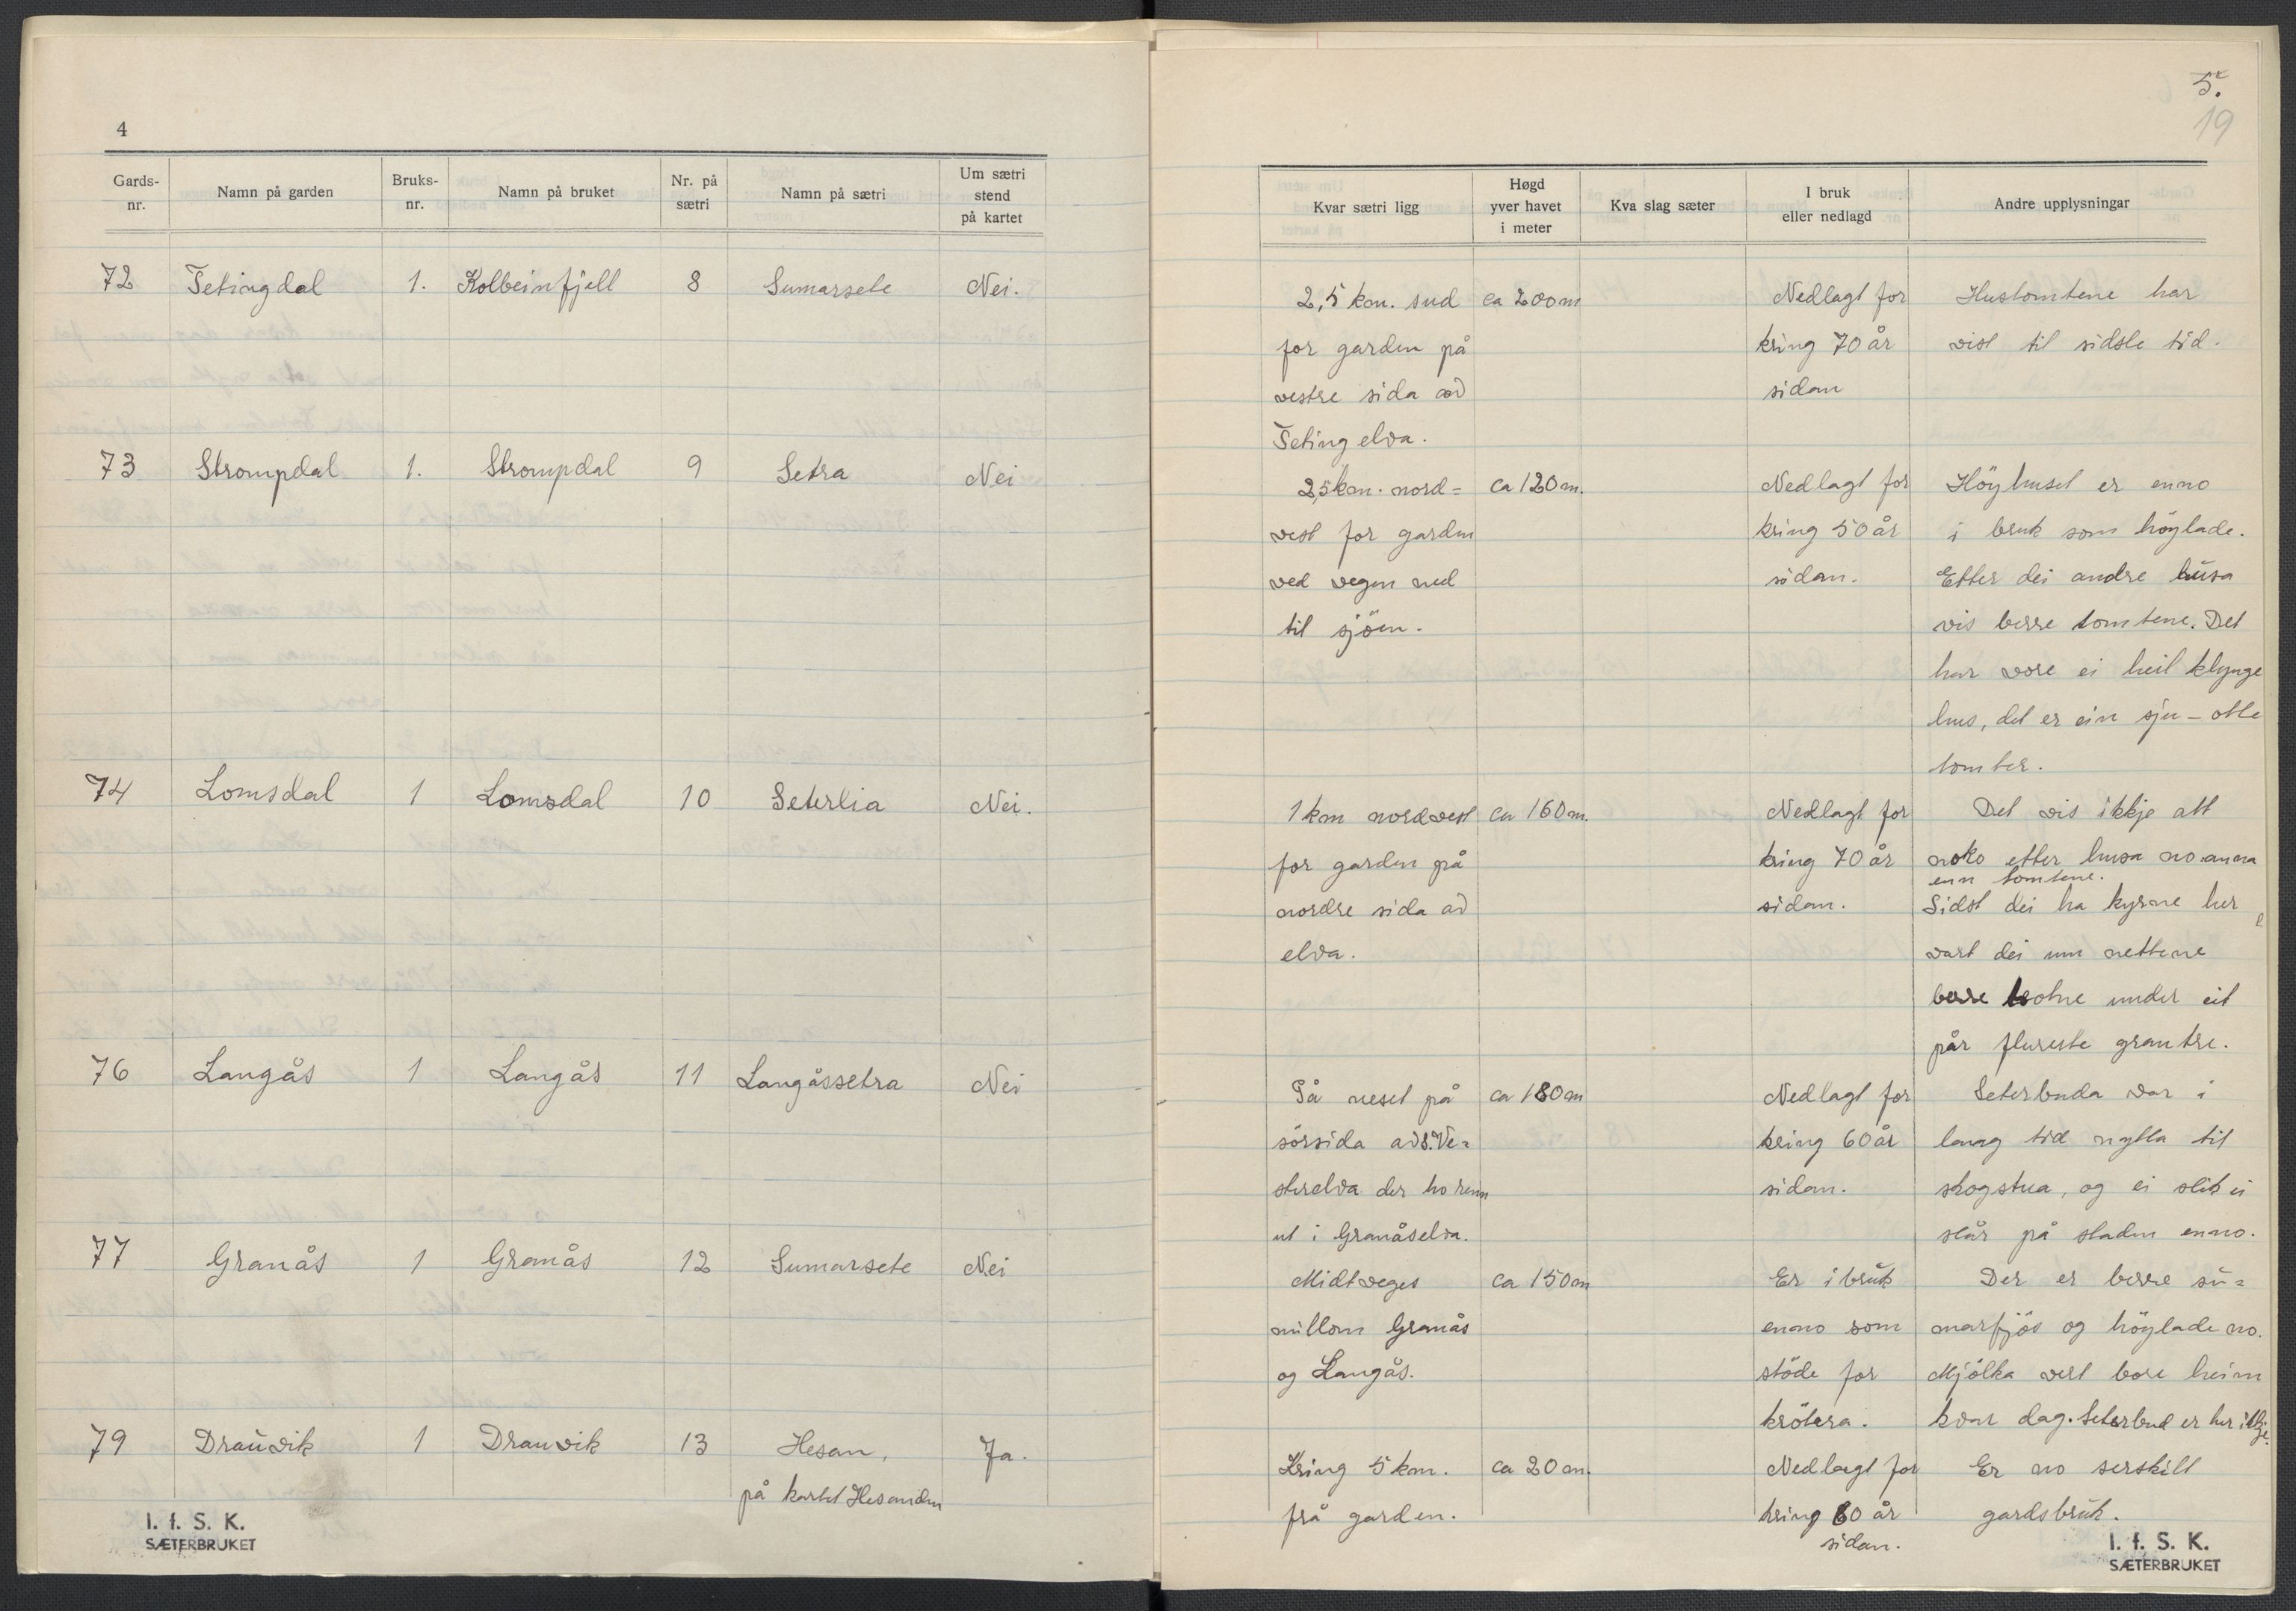 4
Gards-nr. Namn på garden Bruks-nr. Namn på bruket Nr. på sætri Namn på sætri Um sætri stend på kartet
72 Tetingdal 1. Kolbeinfjell 8 Sumarsete Nei.
73 Strompdal 1. Strompdal 9 Setra Nei
74 Lomsdal 1 Lomsdal 10 Seterlia Nei.
76 Langås 1 Langås 11 Langåssetra Nei
77 Granås 1 Granås 12 Sumarsete Nei
79 Drauvik 1 Drauvik 13 Hesan, Ja.
på kartet Hesanden
I. f. S. K.
SÆTERBRUKET
5.
19
Kvar sætri ligg Høgd yver havet i meter Kva slag sæter I bruk eller nedlagd Andre upplysningar
2,5 km. sud ca 200 m Nedlagt for Hustomtene har
for garden på kring 70 år vist til sidste tid.
vestre sida av sidan
Teting elva.
2,5 km. nord= ca 120 m. Nedlagt for Höyhuset er enno
vest for garden kring 50 år i bruk som höylade.
ved vegen ned sidan. Etter dei andre husa
til sjöen. vis berre tomtene. Det
har vore ei heil klynge
hus, det er ein sju - otte
tomter.
1 km nordvest ca 160 m. Nedlagt for Det vis ikkje att
for garden på kring 70 år noko etter husa no anna
enn tomtene.
nordre sida av sidan. Sidst dei ha kyrne her
elva. vart dei um nettene
berre botne under eit
pår flureste grantre.
På neset på ca 180 m Nedlagt for Seterbuda var i
sörsida av S. Ve= kring 60 år lang tid nytta til
sterelva der ho renn sidan. skogstua, og ei slik ei
ut i Granåselva. står på staden enno.
Midtveges ca 150 m Er i bruk Der er berre su=
millom Granås enno som marfjös og höylade no.
og Langås. stöde for Mjölka vert bore heim
krötera. kvar dag. Seterbud er her ikkje.
Kring 5 km. ca 20 m. Nedlagt for Er no serskilt
frå garden. kring 60 år gardsbruk.
sidan.
I. f. S. K.
SÆTERBRUKET